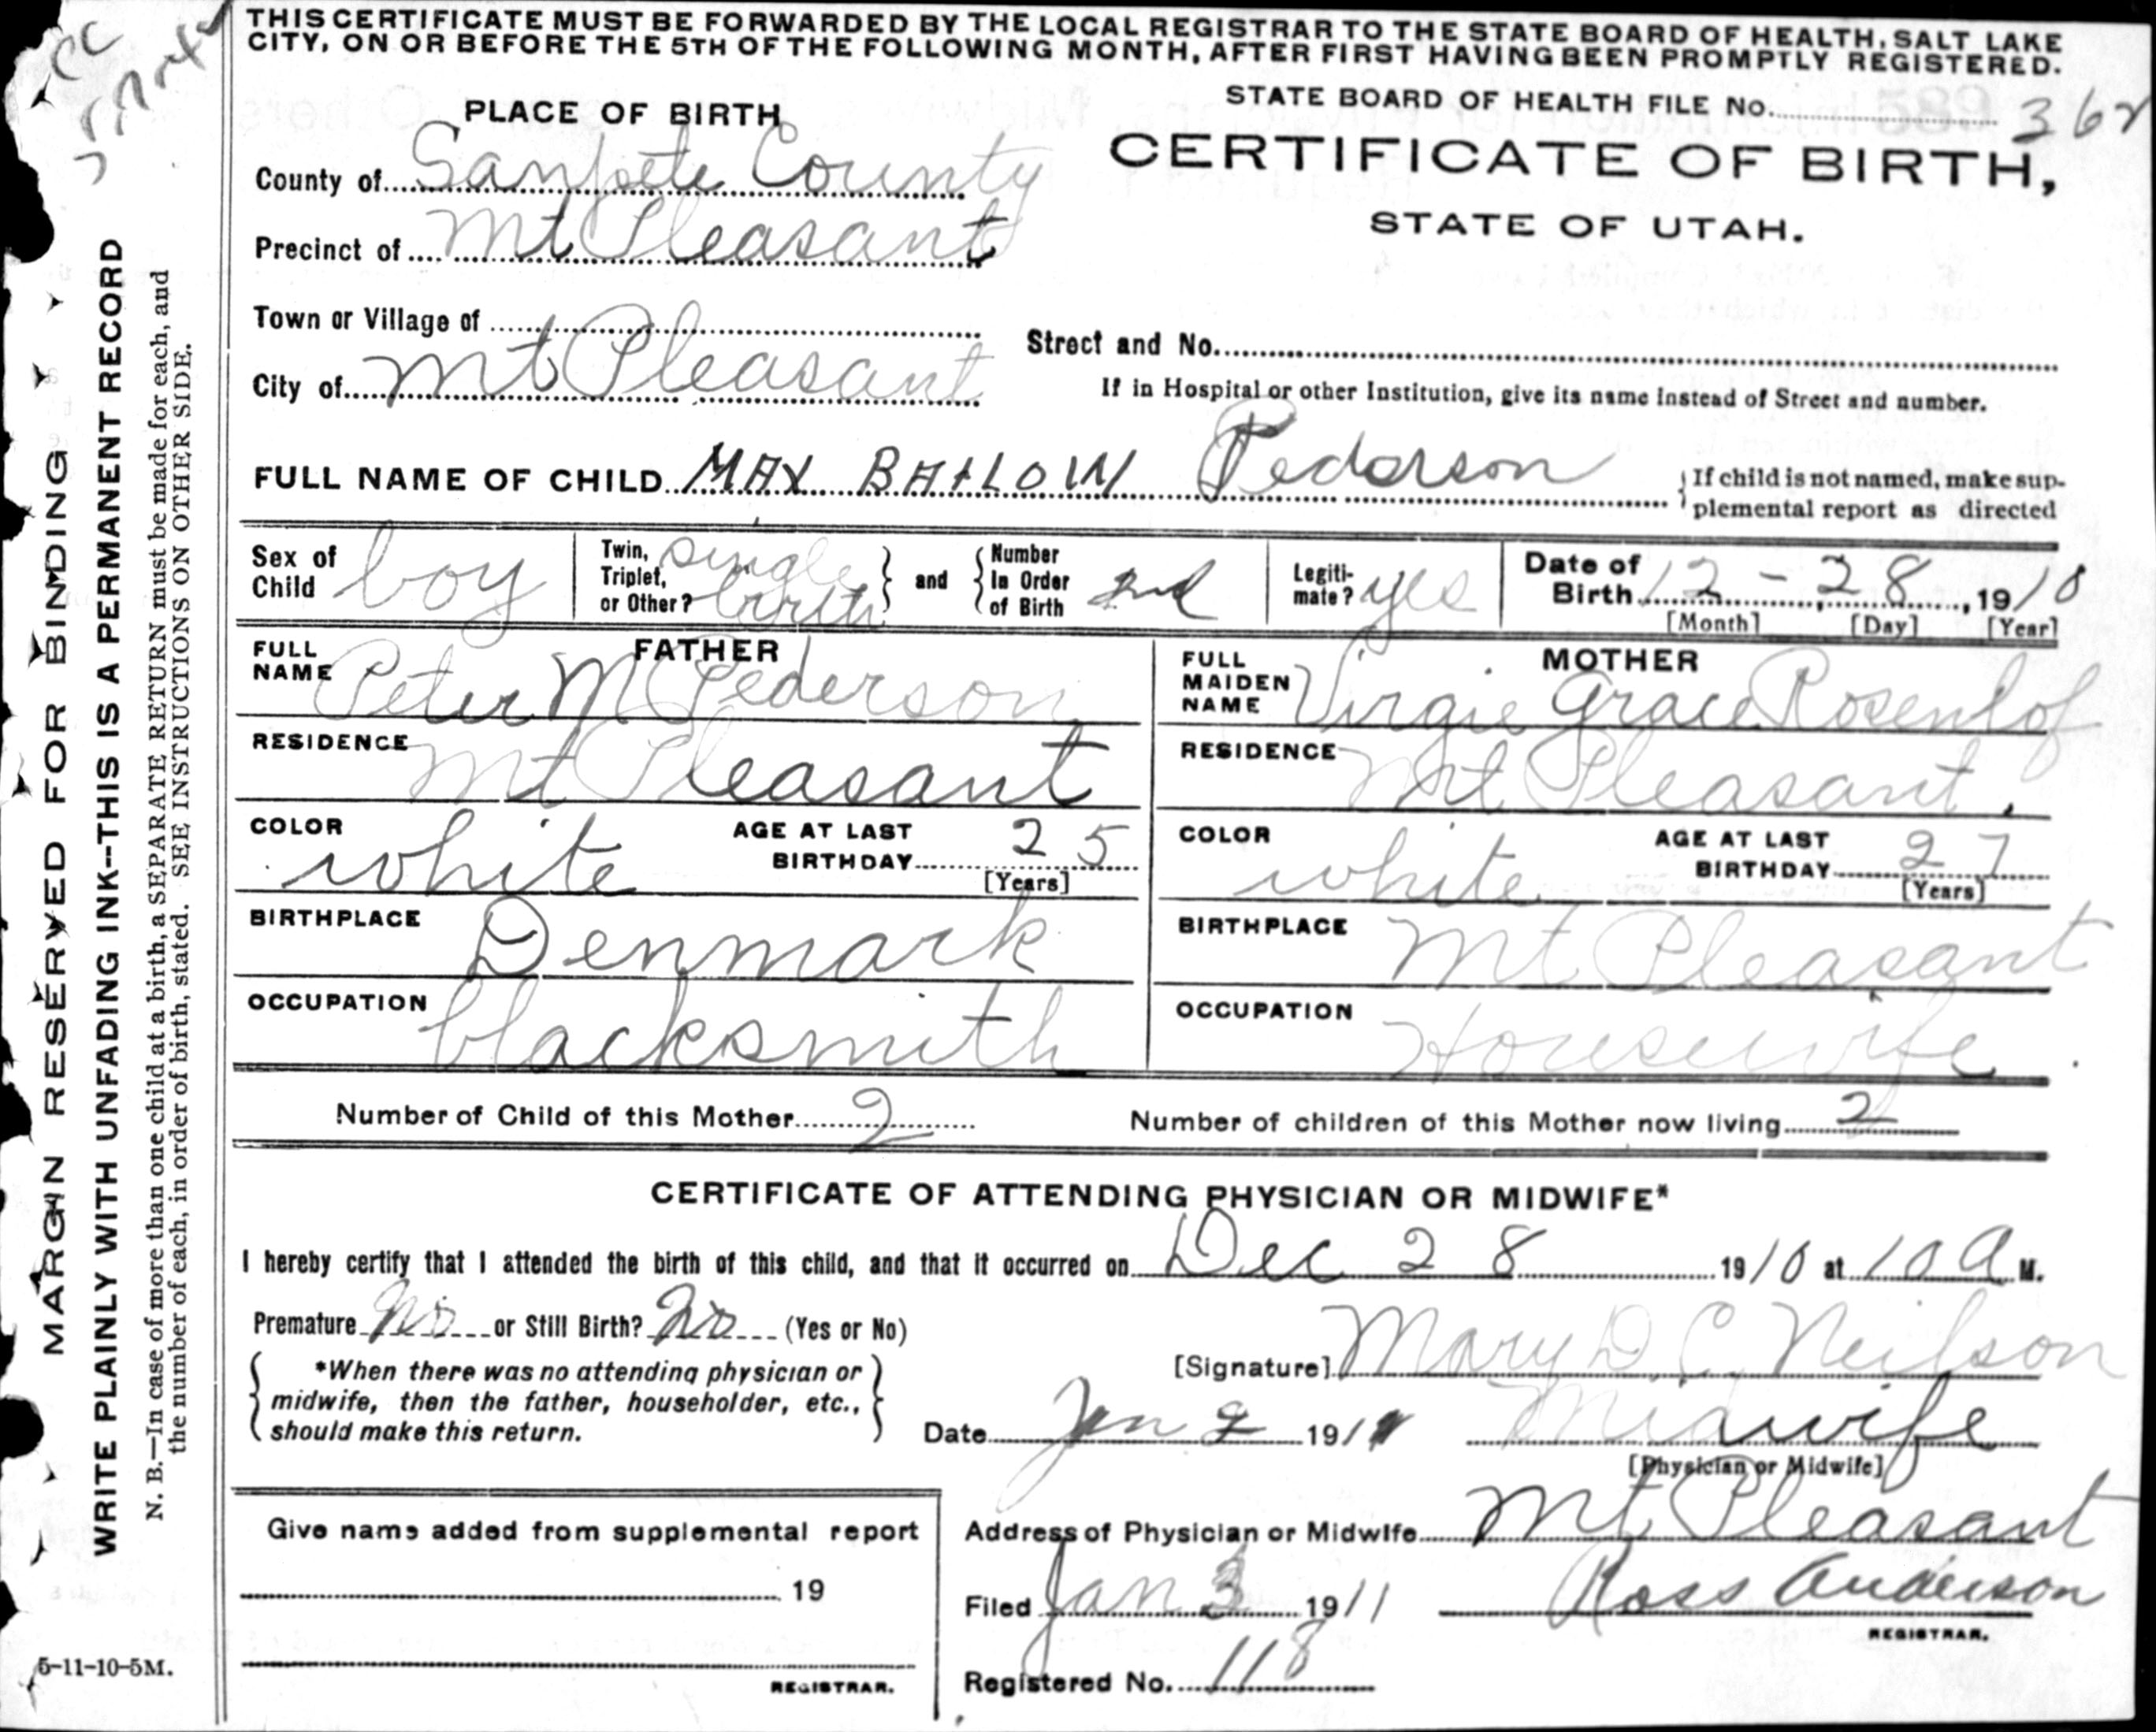 THIS CERTIFICATE MUST BE FORWARDED BY THE LOCAL REGISTRAR TO THE STATE BOARD OF HEALTH, SALT LAKE
CITY, ON OR BEFORE THE 5TH OF THE FOLLOWING MONTH, AFTER FIRST HAVING BEEN PROMPTLY REGISTERED.
STATE BOARD OF HEALTH FILE No. 362
CERTIFICATE OF BIRTH,
STATE OF UTAH.
PLACE OF BIRTH
County of Sanpete County
Precinct of Mt Pleasant
Town or Village of
City of Mt Pleasant
Street and No.
If in Hospital or other Institution, give its name instead of Street and number.
FULL NAME OF CHILD MAX BARLOW Pederson
If child is not named, make sup-
plemental report as directed
Sex of Child boy
Twin, Triplet, or Other? single birth
and Number In Order of Birth 2nd
Legiti-mate? yes
Date of Birth 12 - 28, 1910
[Month] [Day] [Year]
FATHER
FULL NAME Peter M Pederson
RESIDENCE Mt Pleasant
COLOR white AGE AT LAST BIRTHDAY 25
[Years]
BIRTHPLACE Denmark
OCCUPATION blacksmith
MOTHER
FULL MAIDEN NAME Virgie Grace Rosenlof
RESIDENCE Mt Pleasant.
COLOR white AGE AT LAST BIRTHDAY 27
[Years]
BIRTHPLACE Mt Pleasant
OCCUPATION Housewife
Number of Child of this Mother 2 Number of children of this Mother now living 2
CERTIFICATE OF ATTENDING PHYSICIAN OR MIDWIFE*
I hereby certify that I attended the birth of this child, and that it occurred on Dec 28 1910 at 10 A M.
Premature No or Still Birth? No (Yes or No)
*When there was no attending physician or
midwife, then the father, householder, etc.,
should make this return.
[Signature] Mary D. C. Neilson
Date Jan 2 1911 Midwife
[Physician or Midwife]
Address of Physician or Midwife Mt Pleasant
Filed Jan 3 1911 Ross Anderson
REGISTRAR.
Registered No. 118
Give name added from supplemental report
19
REGISTRAR.
5-11-10-5M.
MARGIN RESERVED FOR BINDING
WRITE PLAINLY WITH UNFADING INK--THIS IS A PERMANENT RECORD
N. B.—In case of more than one child at a birth, a SEPARATE RETURN must be made for each, and
the number of each, in order of birth, stated. SEE INSTRUCTIONS ON OTHER SIDE.